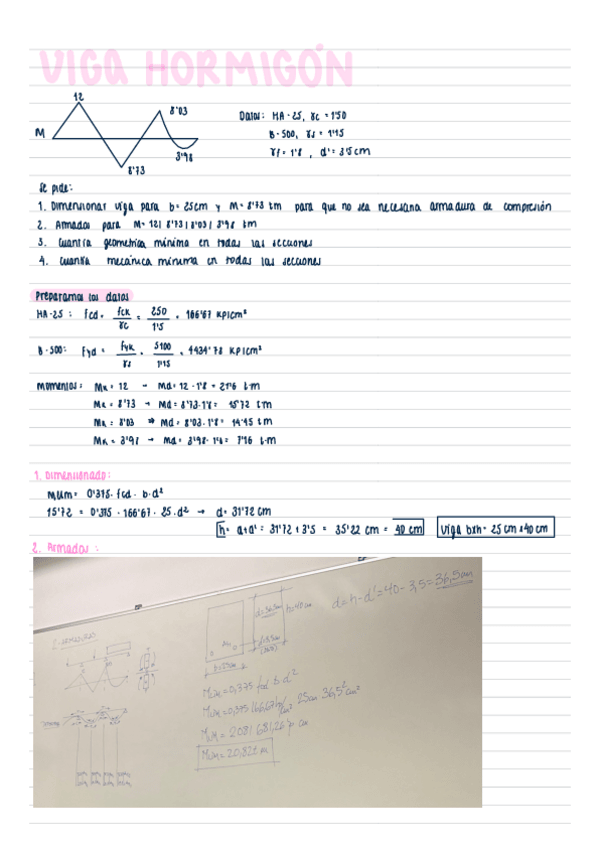 VIGA HORMIGÓN
12
8'03
M
3'98
8'73
Datos: HA-25, γc = 1'50
B-500, γs = 1'15
γf = 1'8 , d' = 3'5 cm
Se pide:
1. Dimensionar viga para b= 25cm y M= 8'73 tm para que no sea necesaria armadura de compresión
2. Armados para M= 12 / 8'73 / 8'03 / 3'98 tm
3. Cuantía geométrica mínima en todas las secciones
4. Cuantía mecánica mínima en todas las secciones
Preparamos los datos
HA-25 : fcd = fck/γc = 250/1'5 = 166'67 KP/cm²
B-500: fyd = fyk/γs = 5100/1'15 = 4434'78 KP/cm²
Momentos: Mk = 12 → Md = 12 · 1'8 = 21'6 t·m
Mk = 8'73 → Md = 8'73·1'8 = 15'72 t·m
Mk = 8'03 ⇒ Md = 8'03 · 1'8 = 14'45 t·m
Mk = 3'98 → Md = 3'98 · 1'8 = 7'16 t·m
1. Dimensionado:
Mlim = 0'375 · fcd · b·d²
15'72 = 0'375 · 166'67 · 25 · d² → d= 31'72 cm
h= d+d' = 31'72 + 3'5 = 35'22 cm = 40 cm
Viga bxh = 25 cm x 40 cm
2. Armados :
d=36,5cm h=40cm
d=h-d'=40-3,5=36,5cm
b=25cm
Mlim=0,375 fcd b·d²
Mlim=0,375 166,67 kp/cm² 25cm 36,5² cm²
Mlim= 2081681,26 kp cm